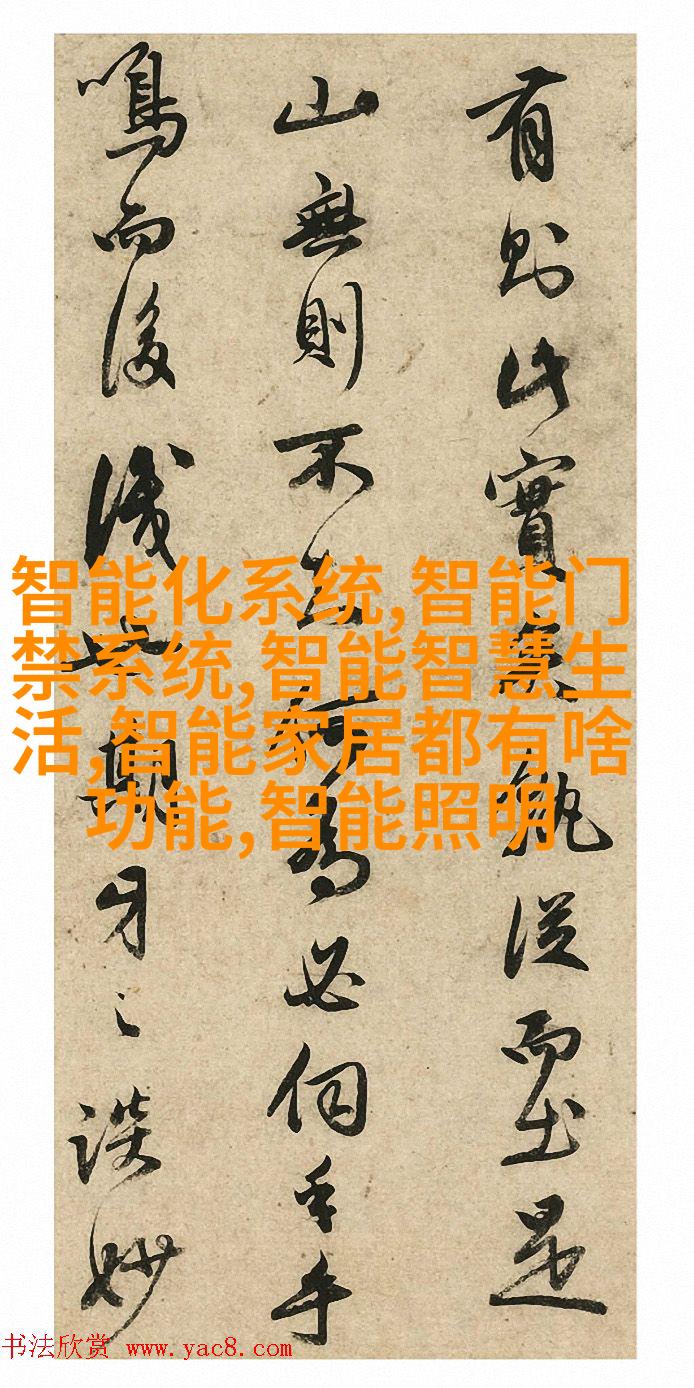 有則此實從而出是
山無則不為必何
鳴而後識談妙
智能化系统,智能门
禁系统,智能智慧生
活,智能家居都有啥
功能,智能照明
书法欣赏 www.yac8.com